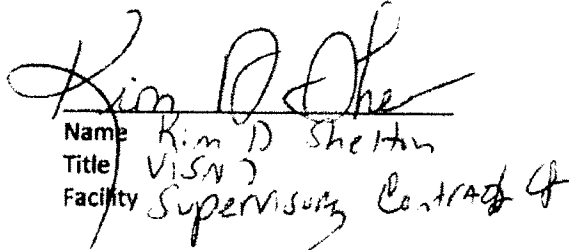 Kim D She
Name Kim D Shelton
Title VISN 7
Facility Supervisory Contract